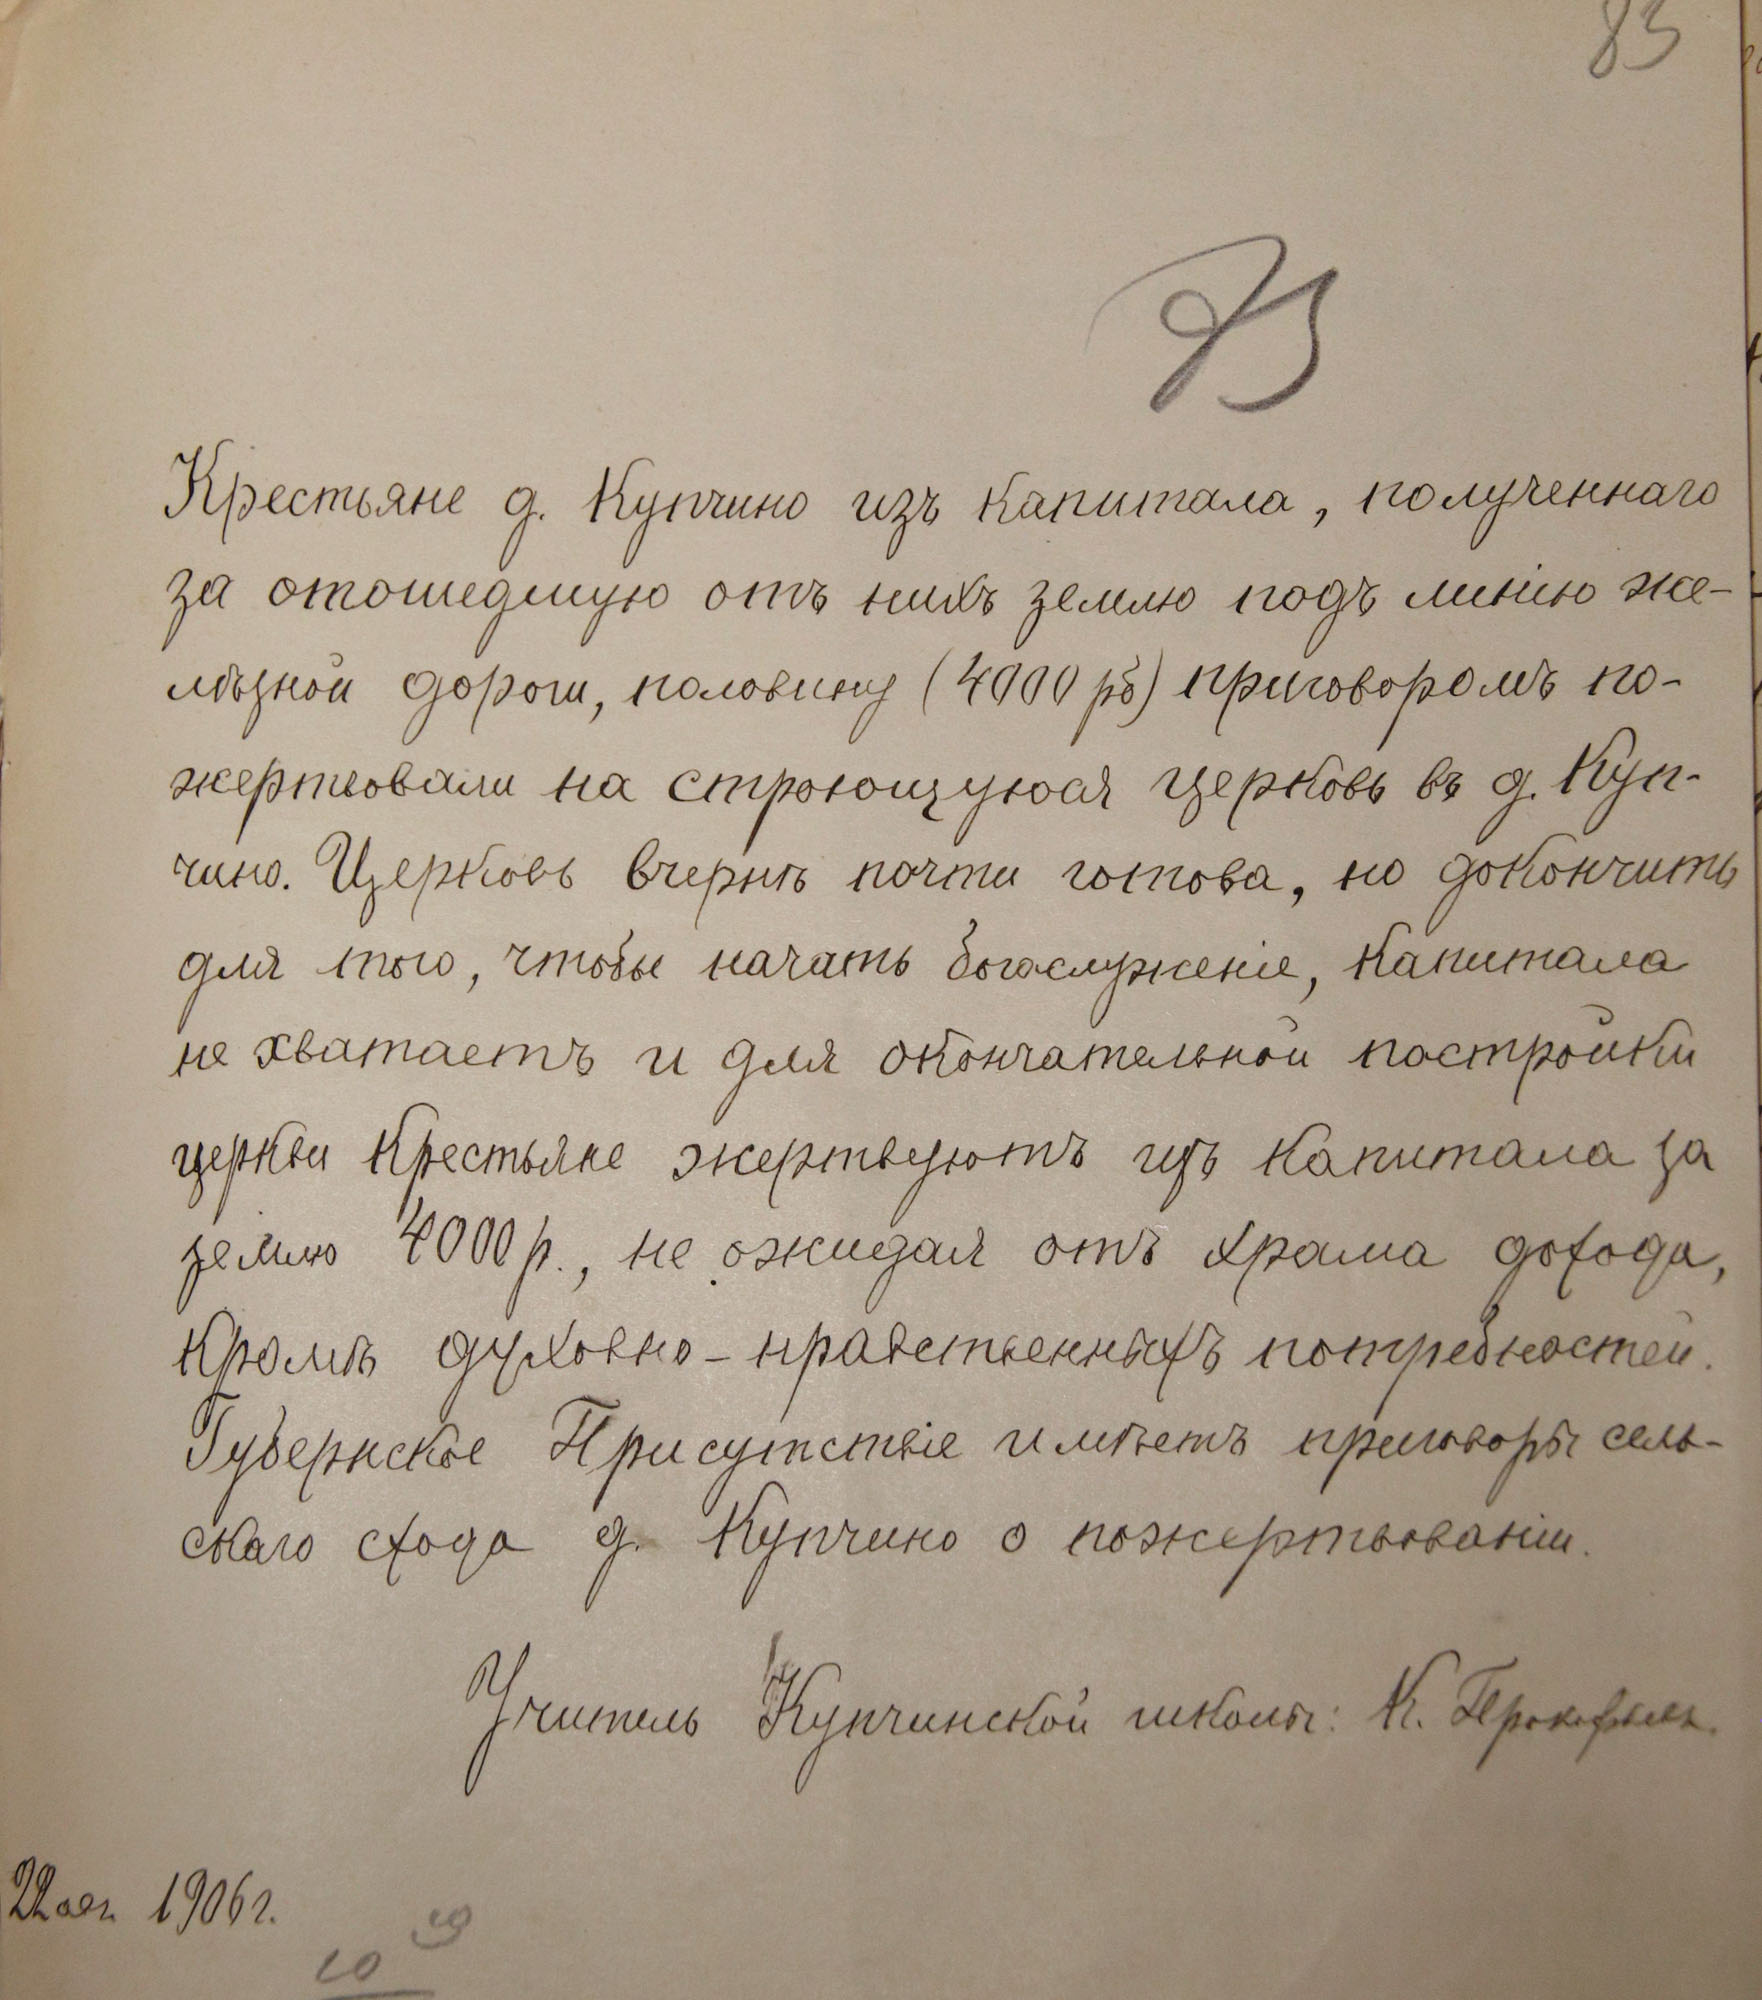 83
Крестьяне д. Купчино изъ капитала, полученнаго
за отошедшую отъ нихъ землю подъ линію же-
лѣзной дороги, половину (4000 рб) приговоромъ по-
жертвовали на строющуюся церковь въ д. Куп-
чино. Церковь вчернѣ почти готова, но докончить
для того, чтобы начать богослуженіе, капитала
не хватаетъ и для окончательной постройки
церкви крестьяне жертвуютъ изъ капитала за
землю 4000 р., не ожидая отъ храма дохода,
кромѣ духовно-нравственныхъ потребностей.
Губернское Присутствіе имѣетъ приговоры сель-
скаго схода д. Купчино о пожертвованіи.
Учитель Купчинской школы: К. Прокофьевъ.
22 1906 г.